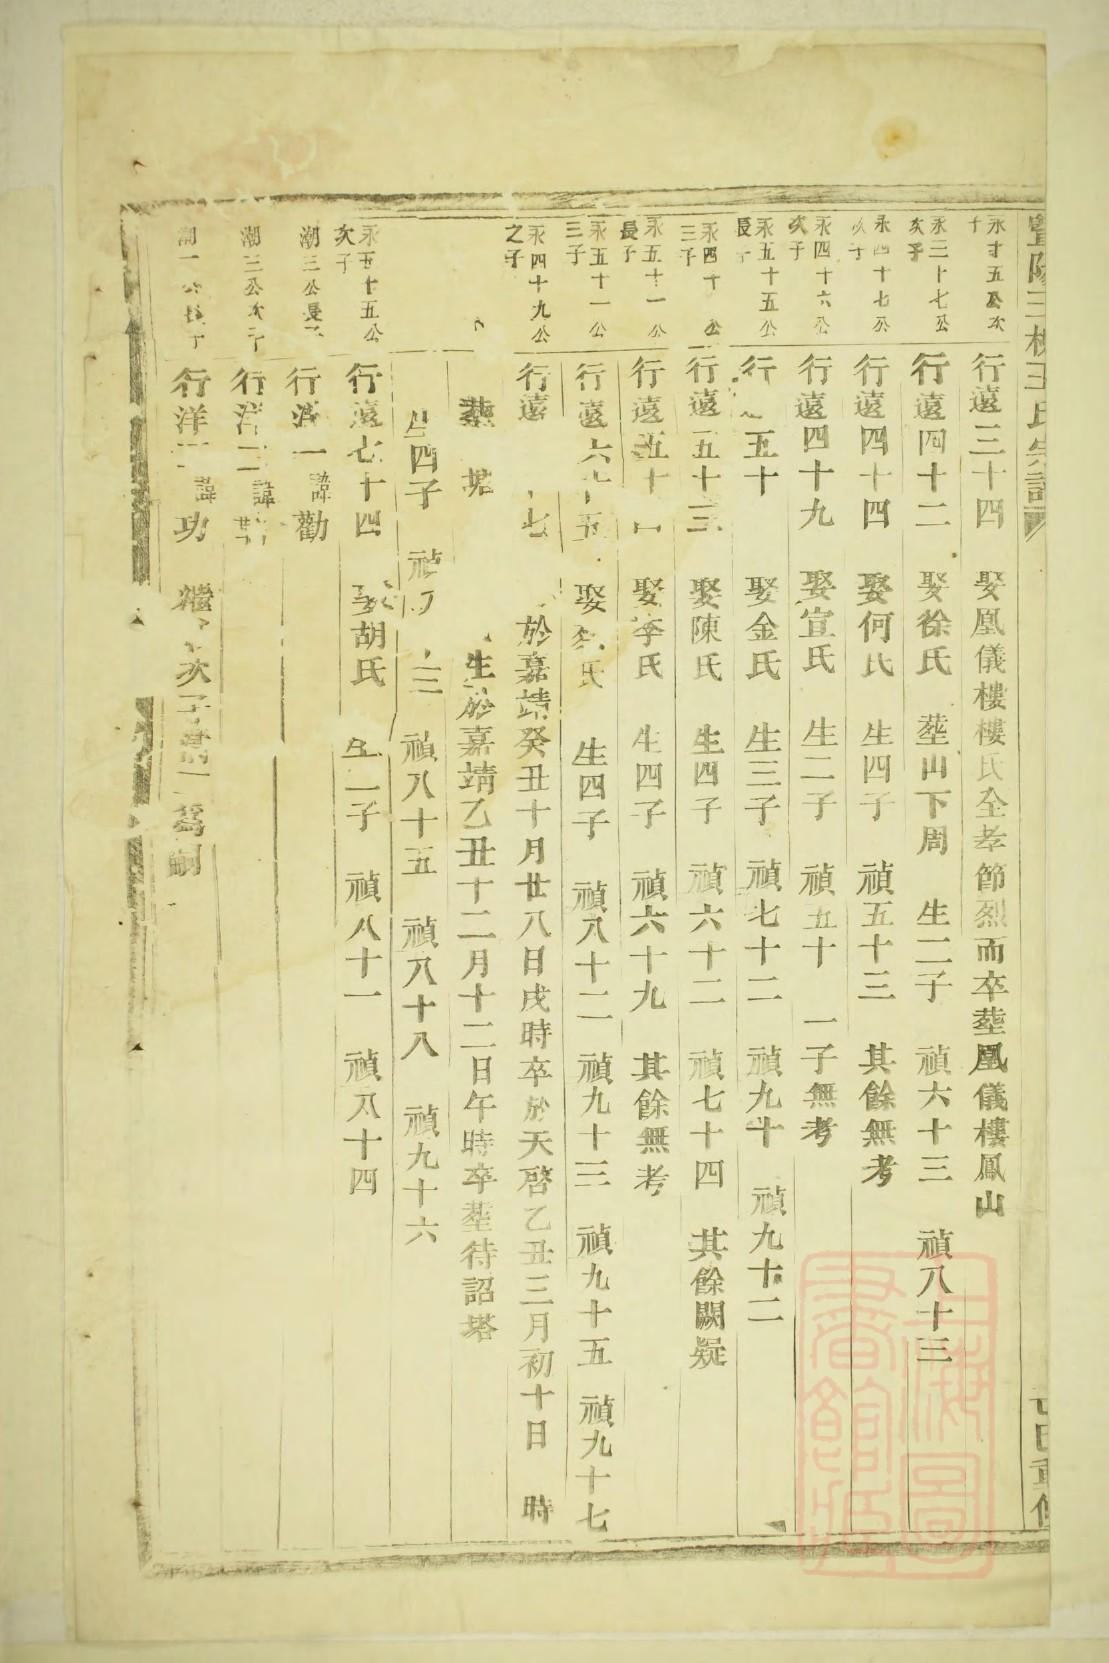 永十五公次子
行遠三十四 娶鳳儀樓樓氏全孝節烈而卒塟鳳儀樓鳳山
永二十七公次子
行遠四十二 娶徐氏 塟山下周 生二子 禎六十三 禎八十三
永四十七公次子
行遠四十四 娶何氏 生四子 禎五十三 其餘無考
永四十六公次子
行遠四十九 娶宣氏 生二子 禎五十 一子無考
永五十五公長子
行 五十 娶金氏 生三子 禎七十二 禎九十 禎九十二
永四十 公三子
行遠五十三 娶陳氏 生四子 禎六十二 禎七十四 其餘闕疑
永五十一公長子
行遠五十 娶李氏 生四子 禎六十九 其餘無考
永五十一公三子
行遠六 娶 氏 生四子 禎八十二 禎九十三 禎九十五 禎九十七
永四十九公之子
行遠 七 於嘉靖癸丑十月廿八日戌時卒於天啓乙丑三月初十日 時
塟 塔
生於嘉靖乙丑十二月十二日午時卒塟待詔塔
生四子 禎 三 禎八十五 禎八十八 禎九十六
永五十五公次子
行遠七十四 娶胡氏 生二子 禎八十一 禎八十四
潮三公長子
行 一 諱勸
潮三公次子
行洋二 諱
潮一公長子
行洋 諱功 繼 次子 為嗣
上海圖書館藏